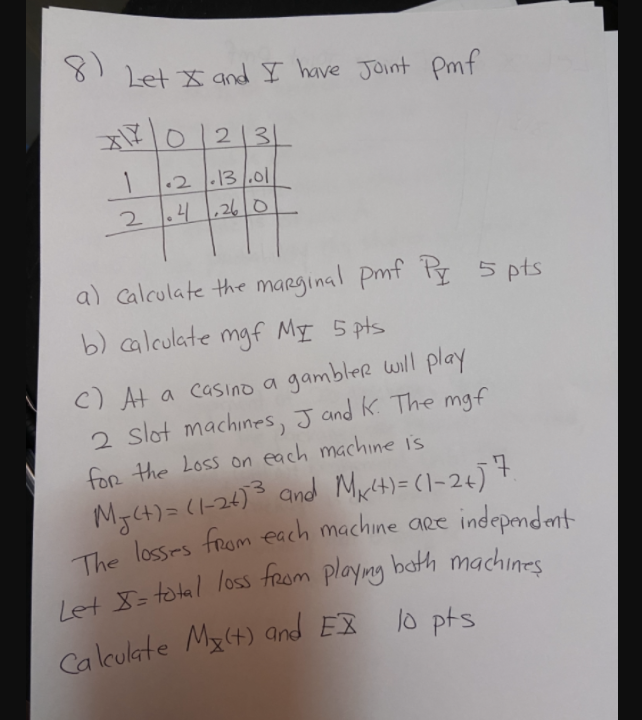 8) Let X and Y have Joint pmf
X\Y | 0 | 2 | 3 |
1 | .2 | .13 | .01
2 | .4 | .26 | 0
a) calculate the marginal pmf P_Y 5 pts
b) calculate mgf M_Y 5 pts
c) At a casino a gambler will play
2 slot machines, J and K. The mgf
for the Loss on each machine is
M_J(t) = (1-2t)^-3 and M_K(t) = (1-2t)^-7.
The losses from each machine are independent
Let X = total loss from playing both machines
Calculate M_X(t) and EX 10 pts